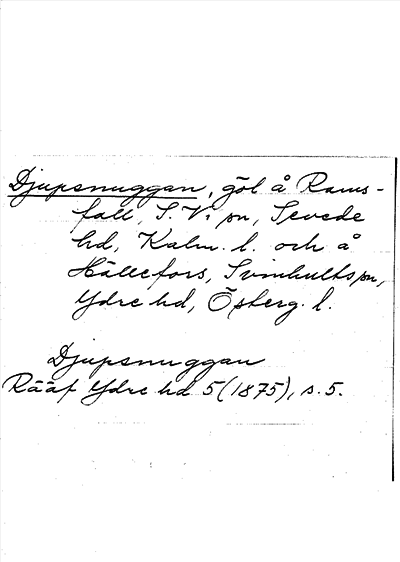 Djupsnuggan, göl å Rams-
fall, S. Vi sn, Sevede
hd, Kalm. l. och å
Hällefors, Svinhults sn,
Ydre hd, Östberg. l.
Djupsnuggan
Rääf Ydre hd 5 (1875), s. 5.